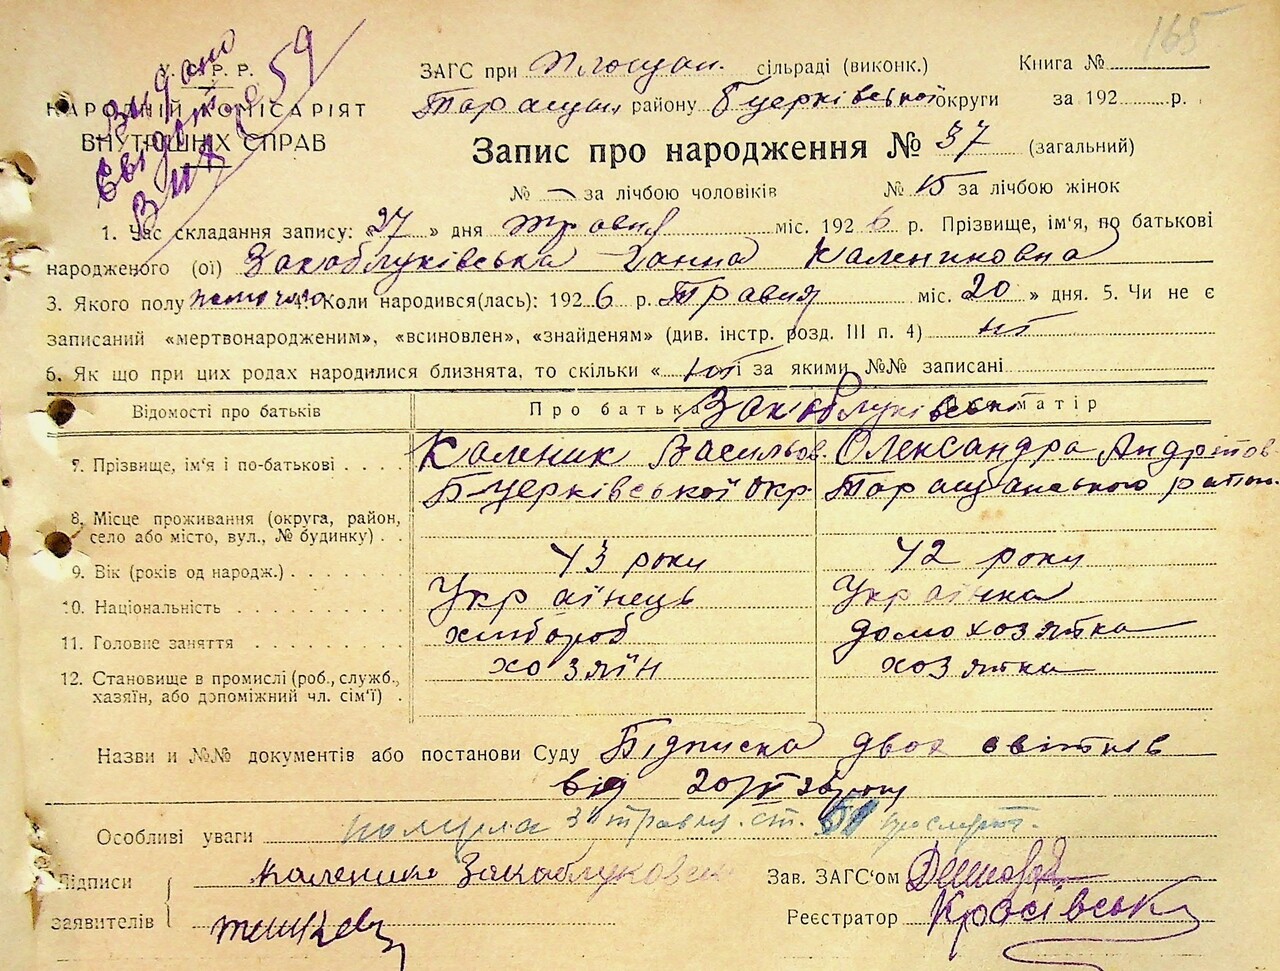 165
Видано
Свідоцтво
59
У. С. Р. Р.
НАРОДНІЙ КОМІСАРІЯТ
ВНУТРІШНІХ СПРАВ
ЗАГС при Площан. сільраді (виконк.) Книга №
Таращан. району Бцерківської округи за 192 р.
Запис про народження № 37 (загальний)
№ — за лічбою чоловіків № 15 за лічбою жінок
1. Час складання запису: 27 » дня травня міс. 1926 р. Прізвище, ім'я, по батькові
народженого (ої) Закаблуківська Ганна Калениковна
3. Якого полу жіночого 4. Коли народився(лась): 1926 р. Травня міс. 20 » дня. 5. Чи не є
записаний «мертвонародженим», «всиновлен», «знайденям» (див. інстр. розд. III п. 4) ні
6. Як що при цих родах народилися близнята, то скільки « ні за якими №№ записані
Відомості про батьків Про батька Про матір
Закаблуківські
7. Прізвище, ім'я і по-батькові Каленик Васильов. Олександра Андріїов.
Б-Церківської Окр. Таращанського район.
8. Місце проживання (округа, район,
село або місто, вул., № будинку)
9. Вік (років од народж.) 43 роки 42 роки
10. Національність Українець Українка
11. Головне заняття хлібороб домохозяйка
12. Становище в промислі (роб., служб., хозяїн хозяйка
хазяїн, або допоміжний чл. сім'ї)
Назви и №№ документів або постанови Суду Підписка двох свідків
від 20/V 26 року
Особливі уваги 3 травня ст.
Підписи Каленик Закаблуковський Зав. ЗАГС'ом
заявителів Реєстратор Красівськ